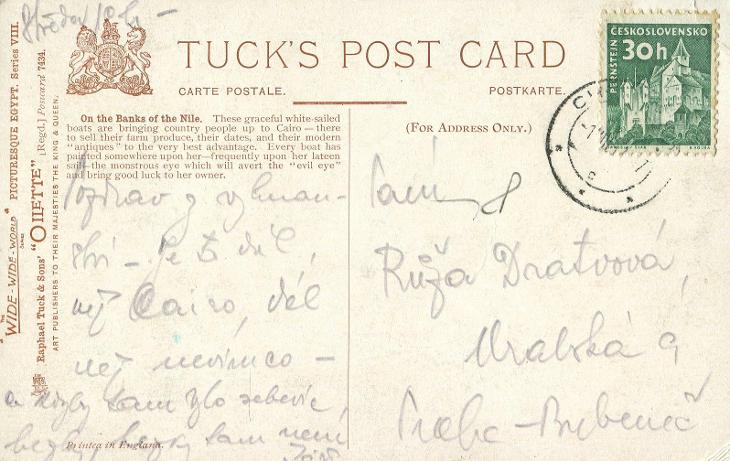 TUCK'S POST CARD
CARTE POSTALE.
POSTKARTE.
On the Banks of the Nile. These graceful white-sailed
boats are bringing country people up to Cairo — there
to sell their farm produce, their dates, and their modern
"antiques" to the very best advantage. Every boat has
painted somewhere upon her—frequently upon her lateen
sail—the monstrous eye which will avert the "evil eye"
and bring good luck to her owner.
(FOR ADDRESS ONLY.)
ČESKOSLOVENSKO
30h
PERNŠTEJN
Pozdrav z vyhnan-
ství – Je to dál,
než Cairo, dál
než nevím co –
a kdyby tam bylo sebevíc
tam není
Paní
Růža Dratvová
9
Praha - Bubeneč
Printed in England.
THE
"WIDE-WIDE-WORLD" SERIES
PICTURESQUE EGYPT. Series VIII.
Raphael Tuck & Sons' "OILETTE" [Regd.] Postcard 7434.
ART PUBLISHERS TO THEIR MAJESTIES THE KING & QUEEN.